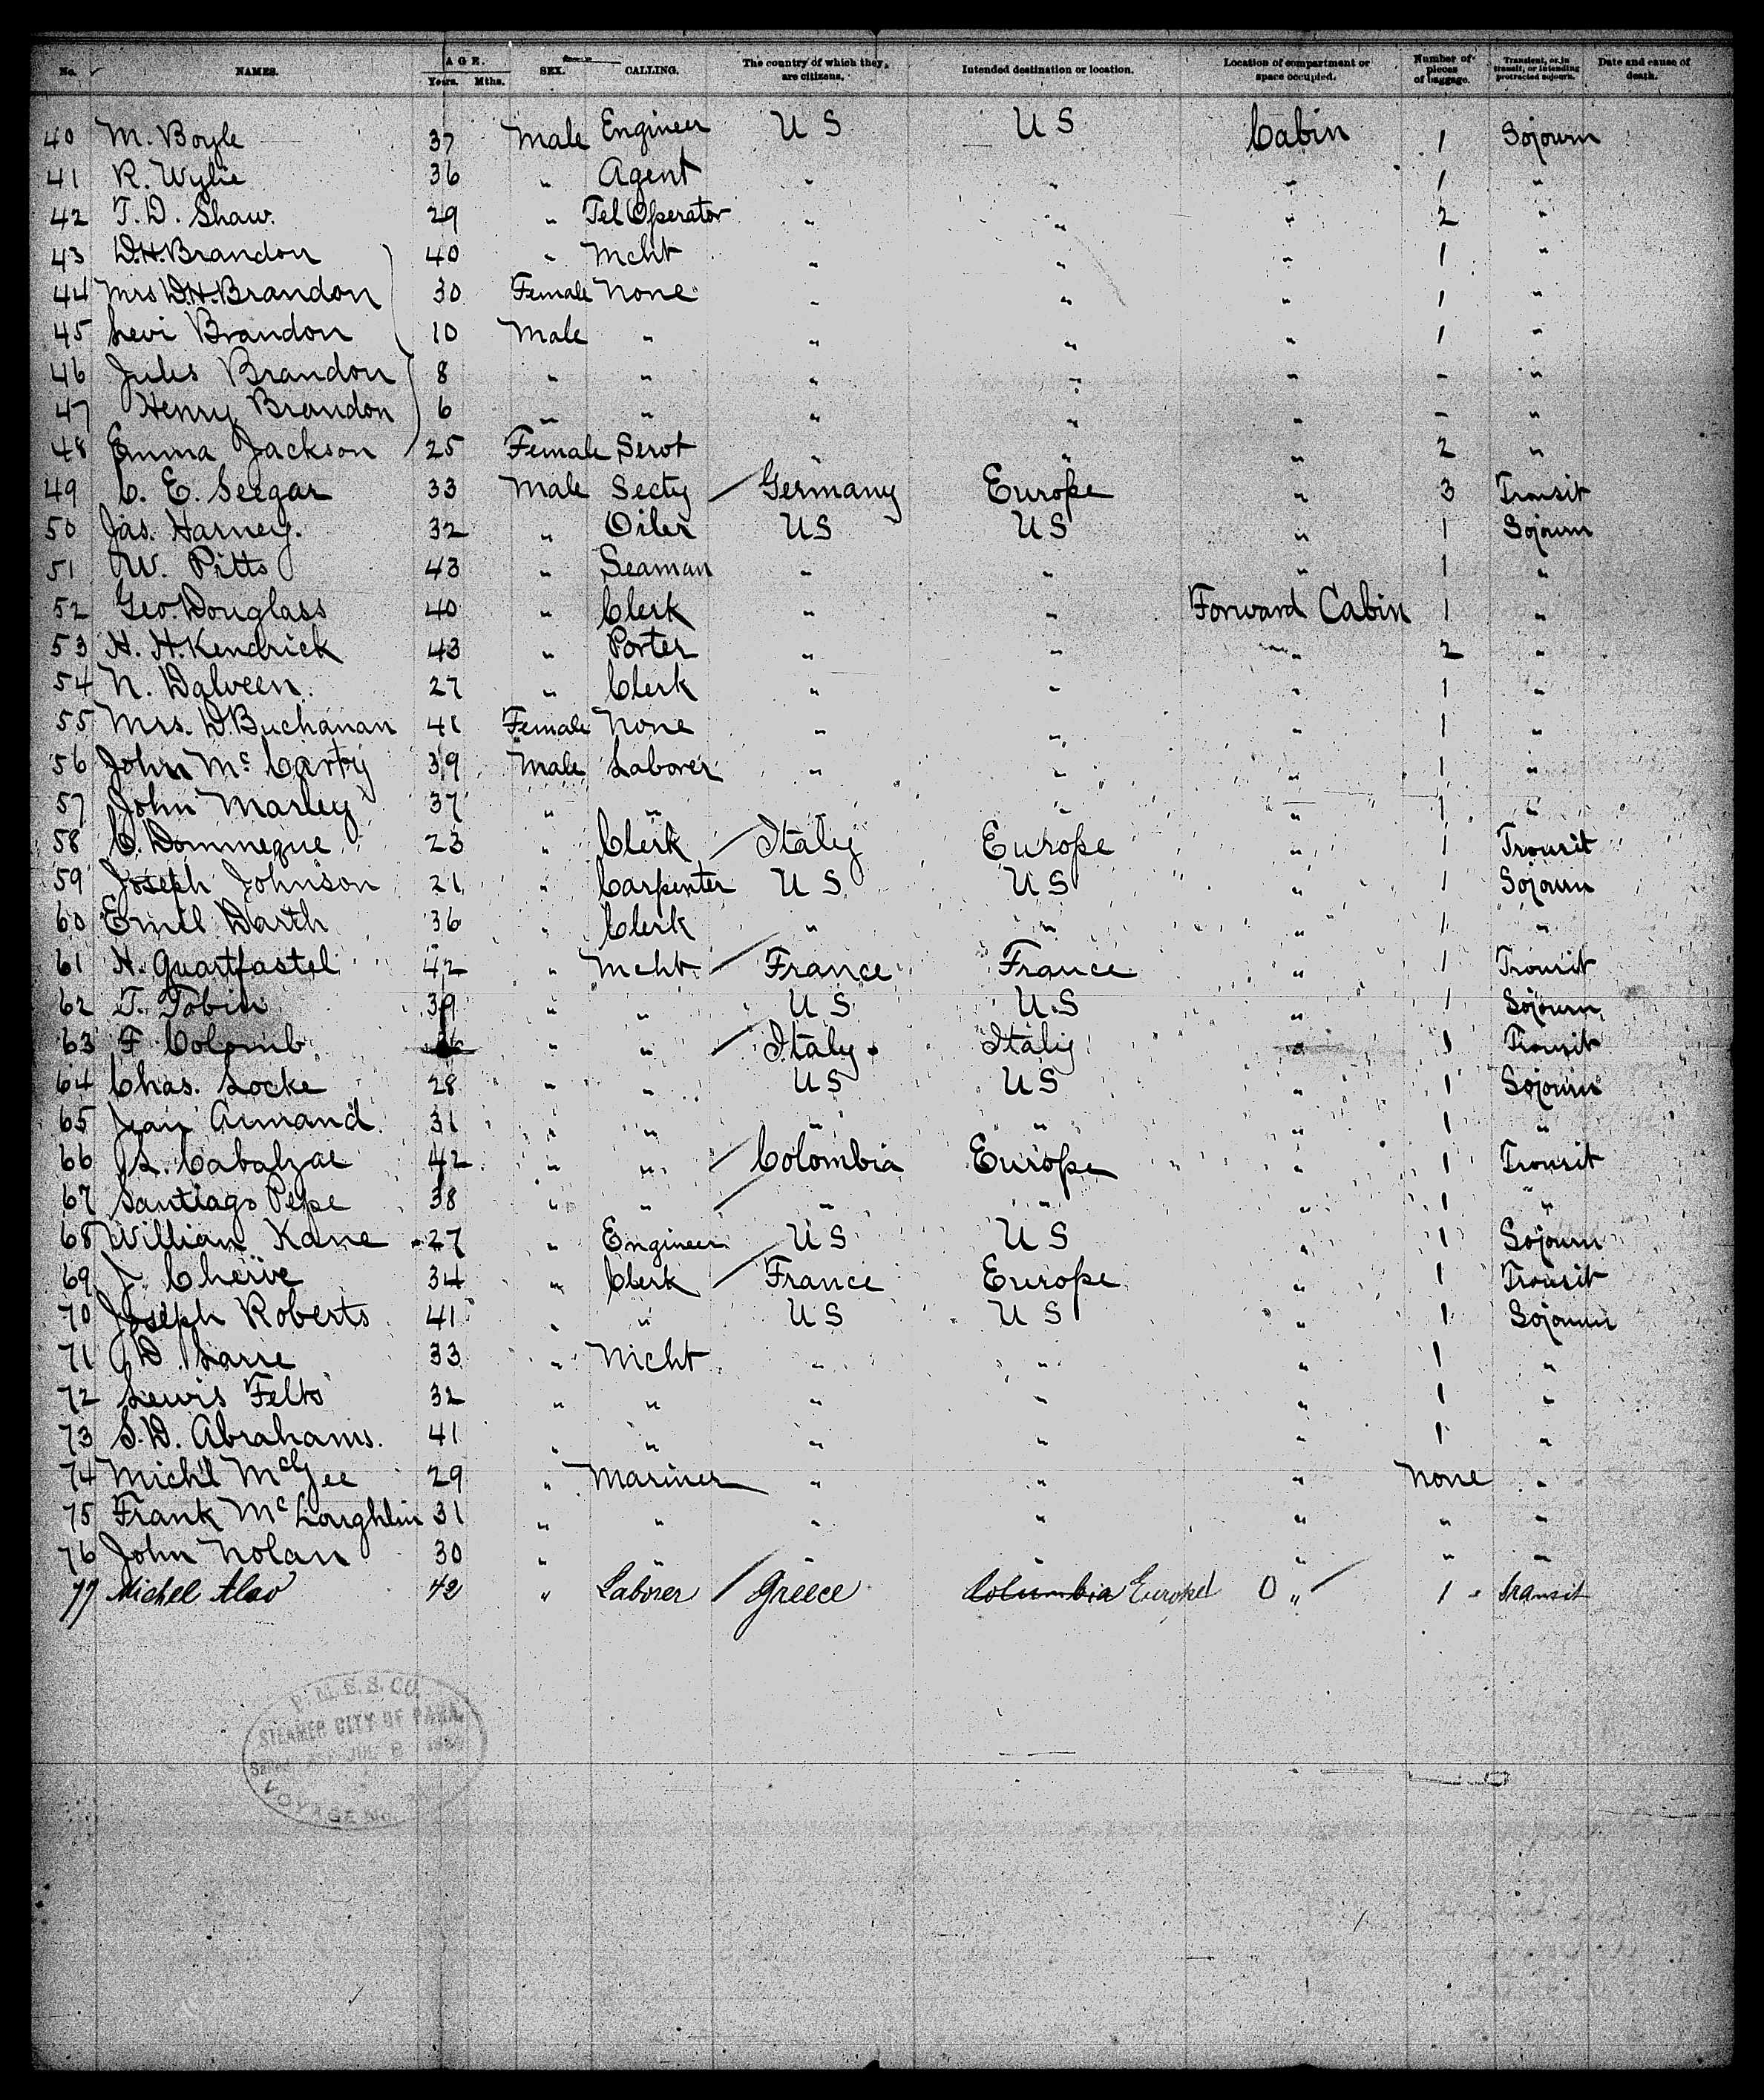 No. NAMES. AGE. Years. Mths. SEX. CALLING. The country of which they are citizens. Intended destination or location. Location of compartment or space occupied. Number of pieces of baggage. Transient, or in transit, or intending protracted sojourn. Date and cause of death.
40 M. Boyle 37 Male Engineer U S U S Cabin 1 Sojourn
41 R. Wylie 36 " Agent " " " 1 "
42 T. D. Shaw. 29 " Tel Operator " " " 2 "
43 D.H. Brandon 40 " Mcht " " " 1 "
44 Mrs D.H. Brandon 30 Female None " " " 1 "
45 Levi Brandon 10 Male " " " " 1 "
46 Jules Brandon 8 " " " " " - "
47 Henry Brandon 6 " " " " " - "
48 Emma Jackson 25 Female Servt " " " 2 "
49 C. E. Seegar 33 Male Secty Germany Europe " 3 Transit
50 Jas. Harney. 32 " Oiler US US " 1 Sojourn
51 W. Pitts 43 " Seaman " " " 1 "
52 Geo. Douglass 40 " Clerk " " Forward Cabin 1 "
53 H. H. Kendrick 43 " Porter " " " 2 "
54 N. Dalveen. 27 " Clerk " " " 1 "
55 Mrs. D. Buchanan 41 Female None " " " 1 "
56 John Mc Carty 39 Male Laborer " " " 1 "
57 John Marley 37 " " " " " 1 "
58 C. Dommeque 23 " Clerk Italy Europe " 1 Transit
59 Joseph Johnson 21 " Carpenter U S U S " 1 Sojourn
60 Emil Barth 36 " Clerk " " " 1 "
61 H. Quartfastel 42 " Mcht France France " 1 Transit
62 T. Tobin 39 " " U S U.S " 1 Sojourn
63 F Colomb " " Italy Italy " 1 Transit
64 Chas. Locke 28 " " US US " 1 Sojourn
65 Jean Armand 31 " " " " " 1 "
66 S. Cabalzae 42 " " Colombia Europe " 1 Transit
67 Santiago Pepe 38 " " " " " 1 "
68 William Kane 27 " Engineer US US " 1 Sojourn
69 J. Cherive 34 " Clerk France Europe " 1 Transit
70 Joseph Roberts 41 " " US US " 1 Sojourn
71 D. Larre 33 " Mcht " " " 1 "
72 Lewis Felts 32 " " " " " 1 "
73 S. D. Abrahams. 41 " " " " " 1 "
74 Mich'l McGee 29 " Mariner " " " None "
75 Frank Mc Loughlin 31 " " " " " " "
76 John Nolan 30 " " " " " " "
77 Michel Alao 42 " Laborer Greece Columbia Europe 0 " 1 " transit
P. M. S. S. CO.
STEAMER CITY OF PARA.
VOYAGE No.